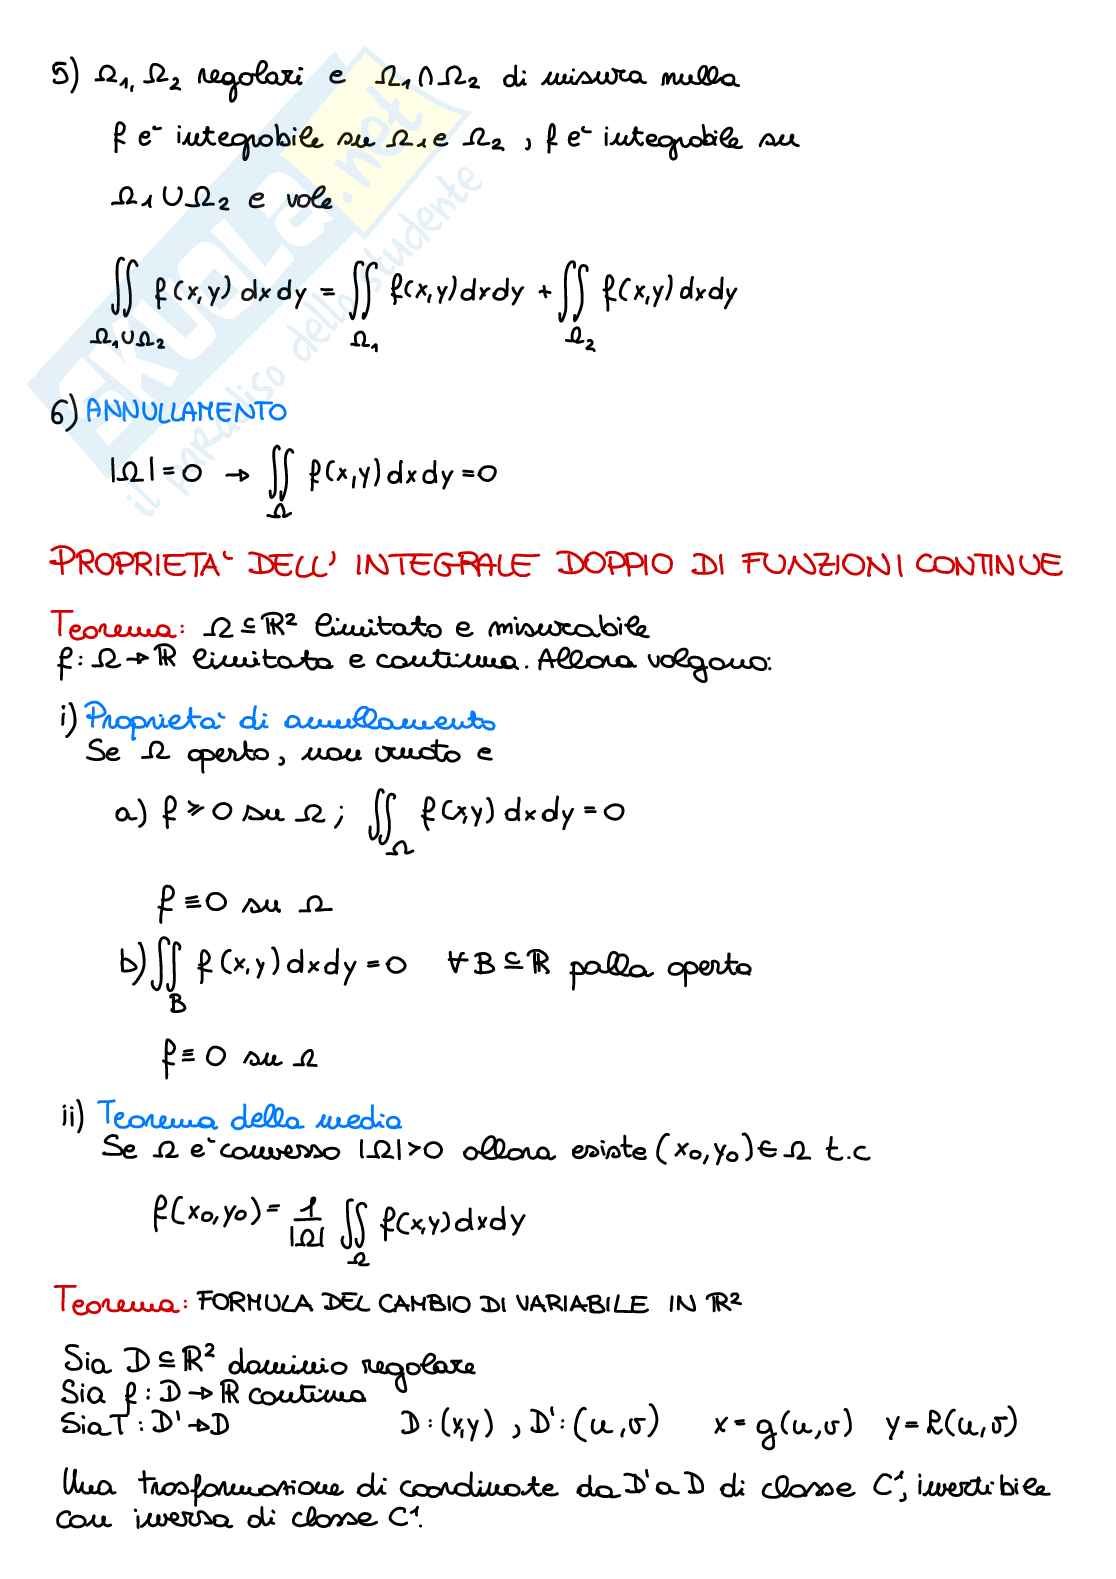 5) Ω₁, Ω₂ regolari e Ω₁∩Ω₂ di misura nulla
f è integrabile su Ω₁ e Ω₂, f è integrabile su
Ω₁∪Ω₂ e vale
∬_{Ω₁∪Ω₂} f(x,y) dx dy = ∬_{Ω₁} f(x,y) dx dy + ∬_{Ω₂} f(x,y) dx dy
6) ANNULLAMENTO
|Ω| = 0 → ∬_Ω f(x,y) dx dy = 0
PROPRIETA' DELL' INTEGRALE DOPPIO DI FUNZIONI CONTINUE
Teorema: Ω ⊆ ℝ² limitato e misurabile
f: Ω → ℝ limitata e continua. Allora valgono:
i) Proprietà di annullamento
Se Ω aperto, non vuoto e
a) f ≥ 0 su Ω; ∬_Ω f(x,y) dx dy = 0
f ≡ 0 su Ω
b) ∬_B f(x,y) dx dy = 0 ∀ B ⊆ ℝ palla aperta
f ≡ 0 su Ω
ii) Teorema della media
Se Ω è connesso |Ω| > 0 allora esiste (x₀, y₀) ∈ Ω t.c
f(x₀, y₀) = 1/|Ω| ∬_Ω f(x,y) dx dy
Teorema: FORMULA DEL CAMBIO DI VARIABILE IN ℝ²
Sia D ⊆ ℝ² dominio regolare
Sia f: D → ℝ continua
Sia T: D' → D D: (x,y), D': (u,v) x = g(u,v) y = h(u,v)
Una trasformazione di coordinate da D' a D di classe C¹, invertibile
con inversa di classe C¹.
SKUOLA.net
il paradiso dello studente